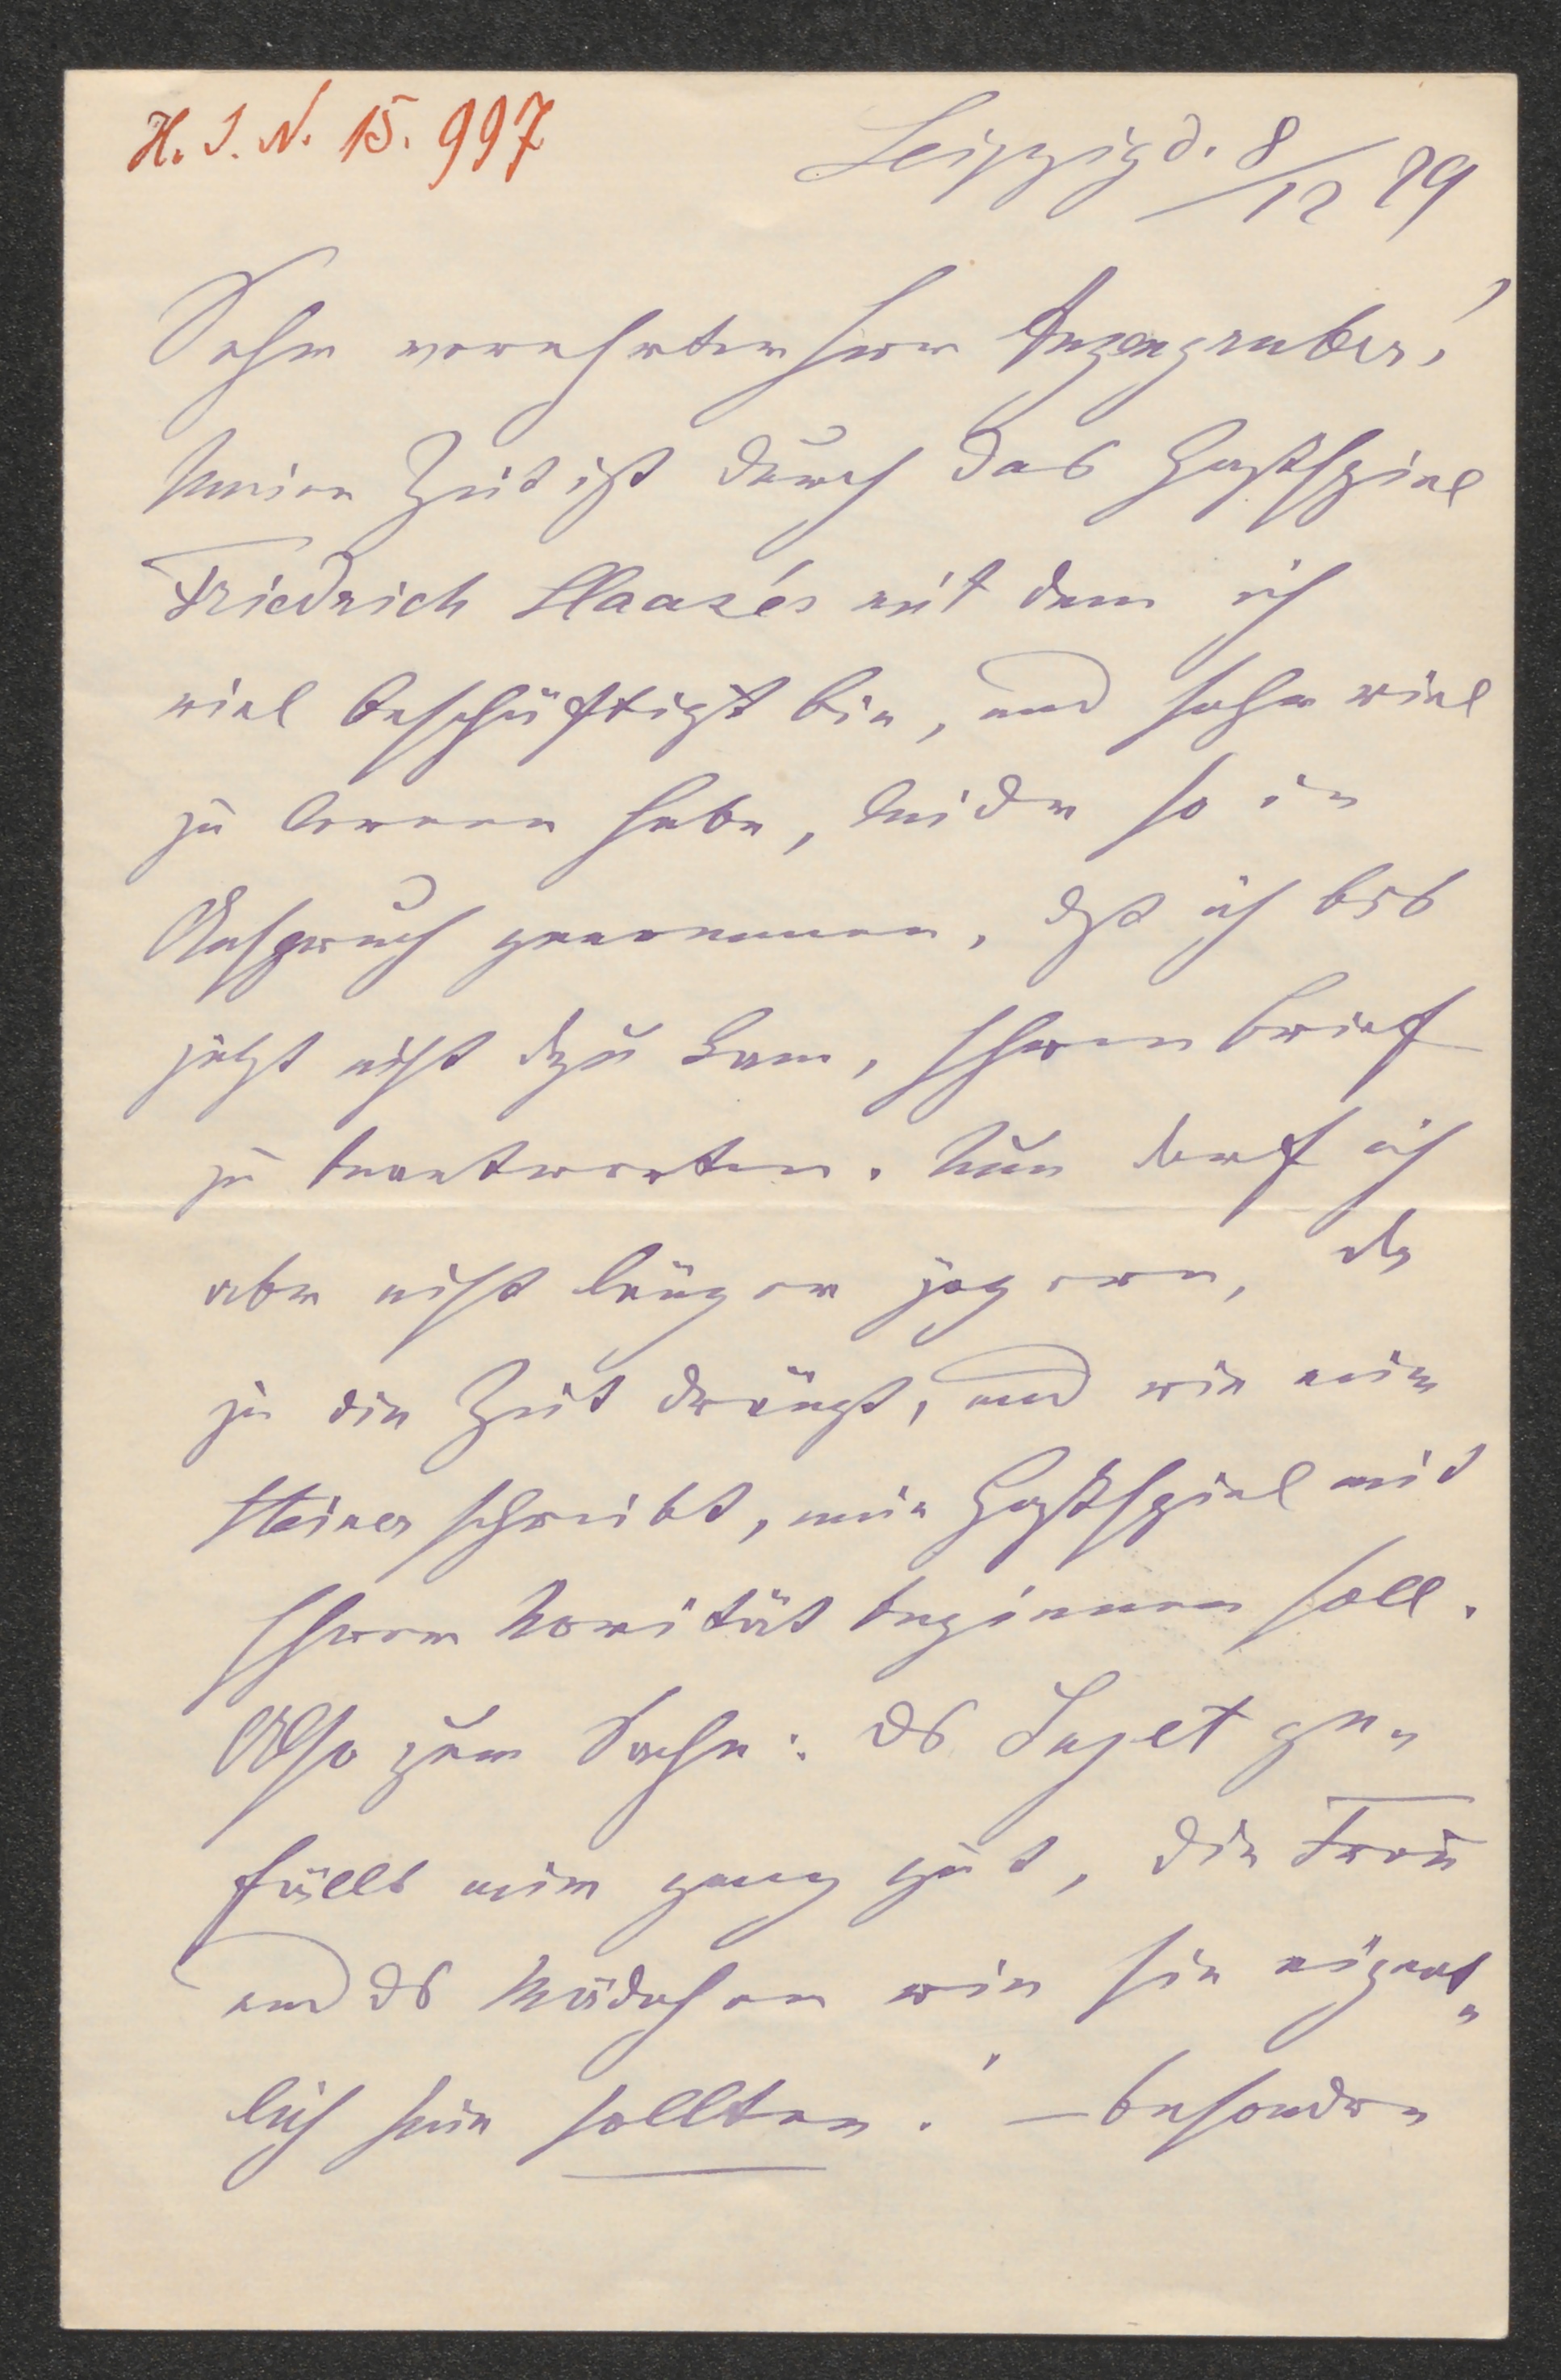 H. I. N. 15.997
Leipzig d. 8/12 79
Sehr verehrter Herr Anzengruber!
Meine Zeit ist durch das Gastspiel
Friedrich Haase's mit dem ich
viel beschäftigt bin, und sehr viel
zu lernen habe, leider so in
Anspruch genommen, daß ich bis
jetzt nicht dazu kam, Ihren Brief
zu beantworten. Nun darf ich
aber nicht länger zögern, da
ja die Zeit drängt, und wie mir
Steiner schreibt, mein Gastspiel mit
Ihrer Novität beginnen soll.
Also zur Sache: das Sujet ge„
fällt mir ganz gut, die Frau
und das Mädchen wie sie eigent„
lich sein sollten. – besondre